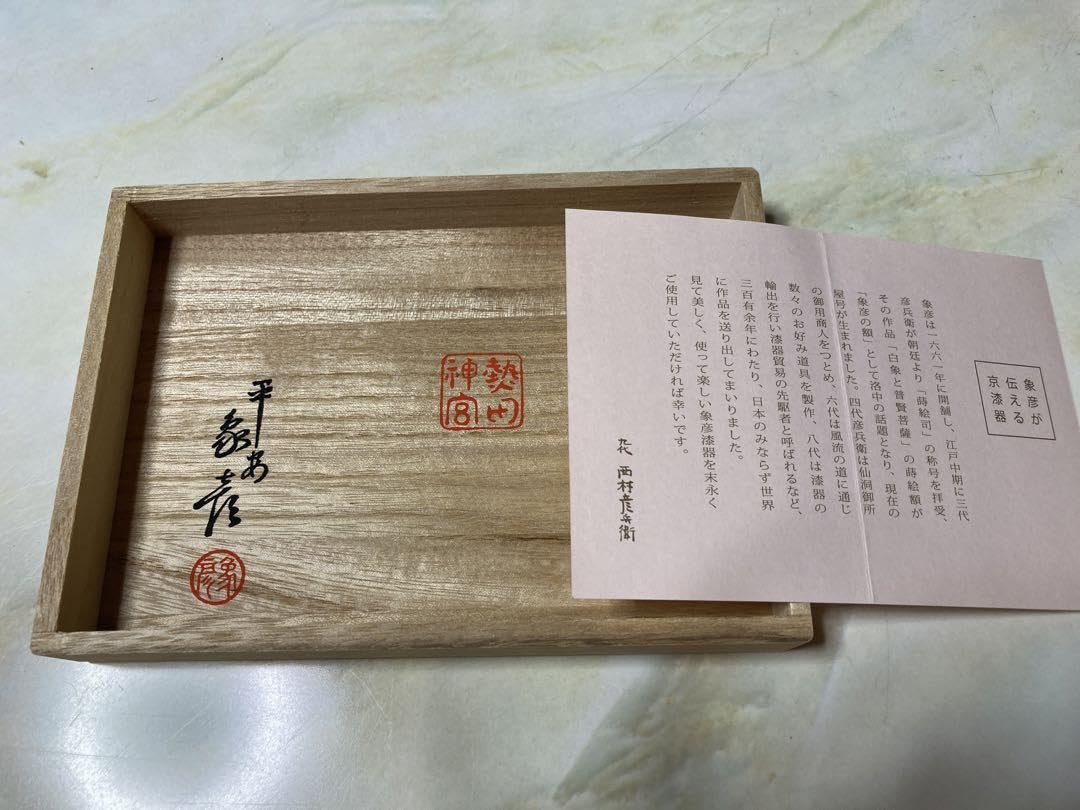 象彦が
伝える
京漆器
象彦は一六六一年に開舗し、江戸中期に三代
彦兵衛が朝廷より「蒔絵司」の称号を拝受、
その作品「白象と普賢菩薩」の蒔絵額が
「象彦の額」として洛中の話題となり、現在の
屋号が生まれました。四代彦兵衛は仙洞御所
の御用商人をつとめ、六代は風流の道に通じ
数々のお好み道具を製作、八代は漆器の
輸出を行い漆器貿易の先駆者と呼ばれるなど、
三百有余年にわたり、日本のみならず世界
に作品を送り出してまいりました。
見て美しく、使って楽しい象彦漆器を末永く
ご使用していただければ幸いです。
九代 西村彦兵衛
熱田
神宮
平安
象彦
象彦